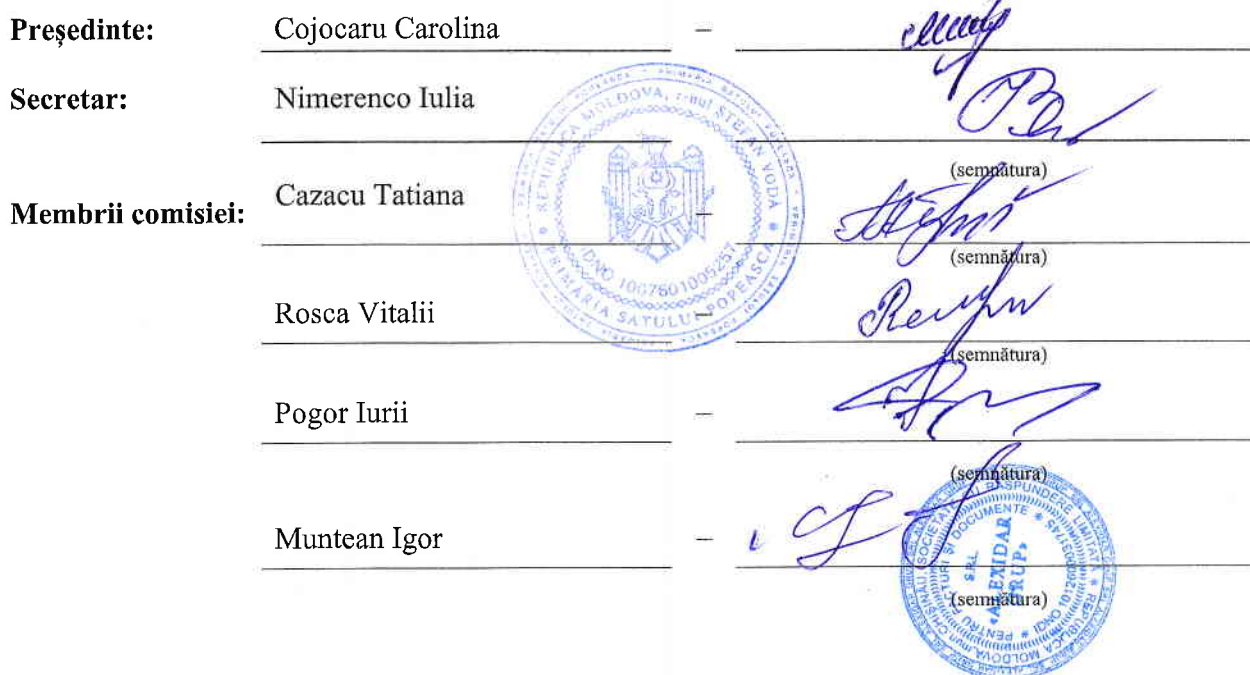 Președinte: Cojocaru Carolina –
Secretar: Nimerenco Iulia
(semnătura)
Membrii comisiei: Cazacu Tatiana –
(semnătura)
Rosca Vitalii –
(semnătura)
Pogor Iurii –
(semnătura)
Muntean Igor –
(semnătura)
REPUBLICA MOLDOVA, r-nul ȘTEFAN VODĂ
PRIMĂRIA SATULUI POPEASCA
IDNO 1007601005257
SOCIETATE CU RĂSPUNDERE LIMITATĂ * REPUBLICA MOLDOVA, mun. CHIȘINĂU
PENTRU FACTURI ȘI DOCUMENTE
S.R.L.
«ALEXIDAR
GRUP»